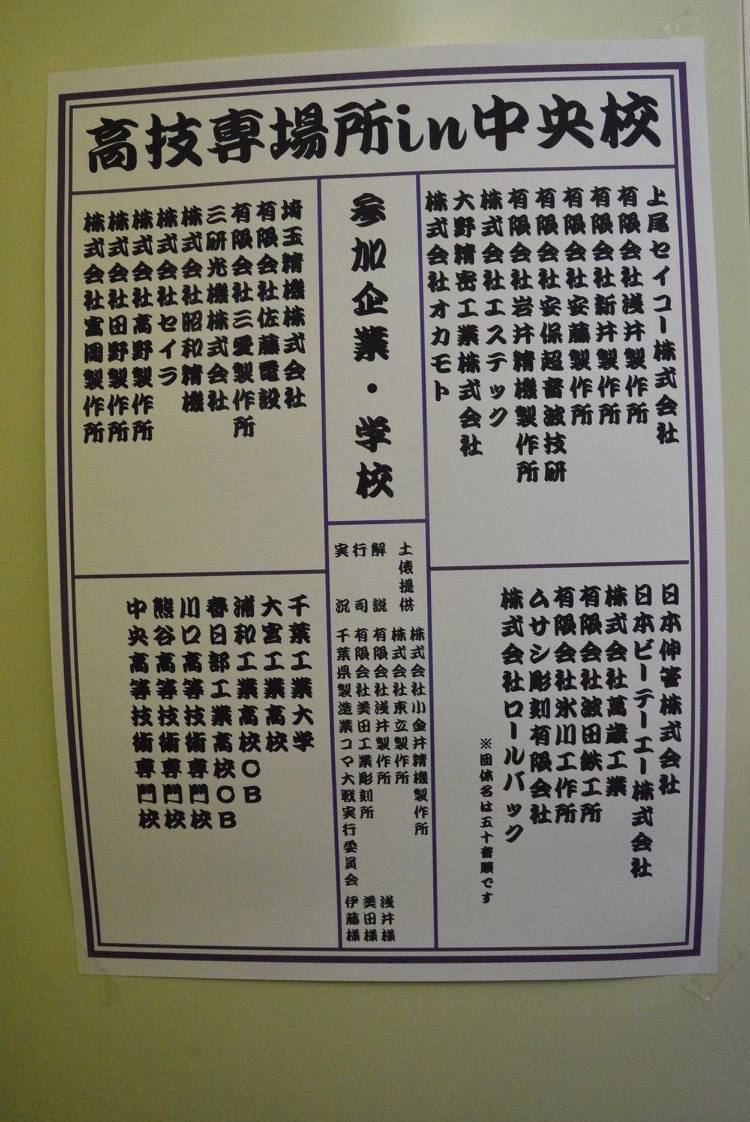 高技専場所in中央校
上尾セイコー株式会社
有限会社浅井製作所
有限会社新井製作所
有限会社安藤製作所
有限会社安保超音波技研
有限会社岩井精機製作所
株式会社エステック
大野精密工業株式会社
株式会社オカモト
参加企業・学校
埼玉精機株式会社
有限会社佐藤電設
有限会社三愛製作所
三研光機株式会社
株式会社昭和精機
株式会社セイラ
株式会社高野製作所
株式会社田野製作所
株式会社富岡製作所
日本伸管株式会社
日本ビーテーエー株式会社
株式会社萬歳工業
有限会社波田鉄工所
有限会社氷川工作所
ムサシ彫刻有限会社
株式会社ロールバック
※団体名は五十音順です
土俵提供 株式会社小金井精機製作所
株式会社東立製作所
解説 有限会社浅井製作所 浅井様
行司 有限会社美田工業彫刻所 美田様
実況 千葉県製造業コマ大戦実行委員会 伊藤様
千葉工業大学
大宮工業高校
浦和工業高校OB
春日部工業高校OB
川口高等技術専門校
熊谷高等技術専門校
中央高等技術専門校